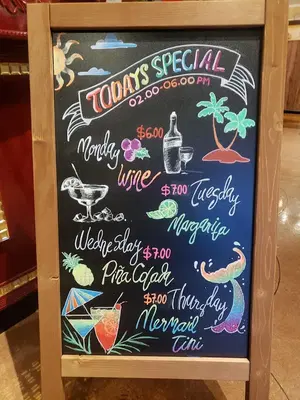 TODAYS SPECIAL
02.00-06.00 PM
$6.00
Monday
Wine
$7.00
Tuesday
Margarita
Wednesday
$7.00
Piña Colada
$7.00 Thursday
Mermaid
Tini